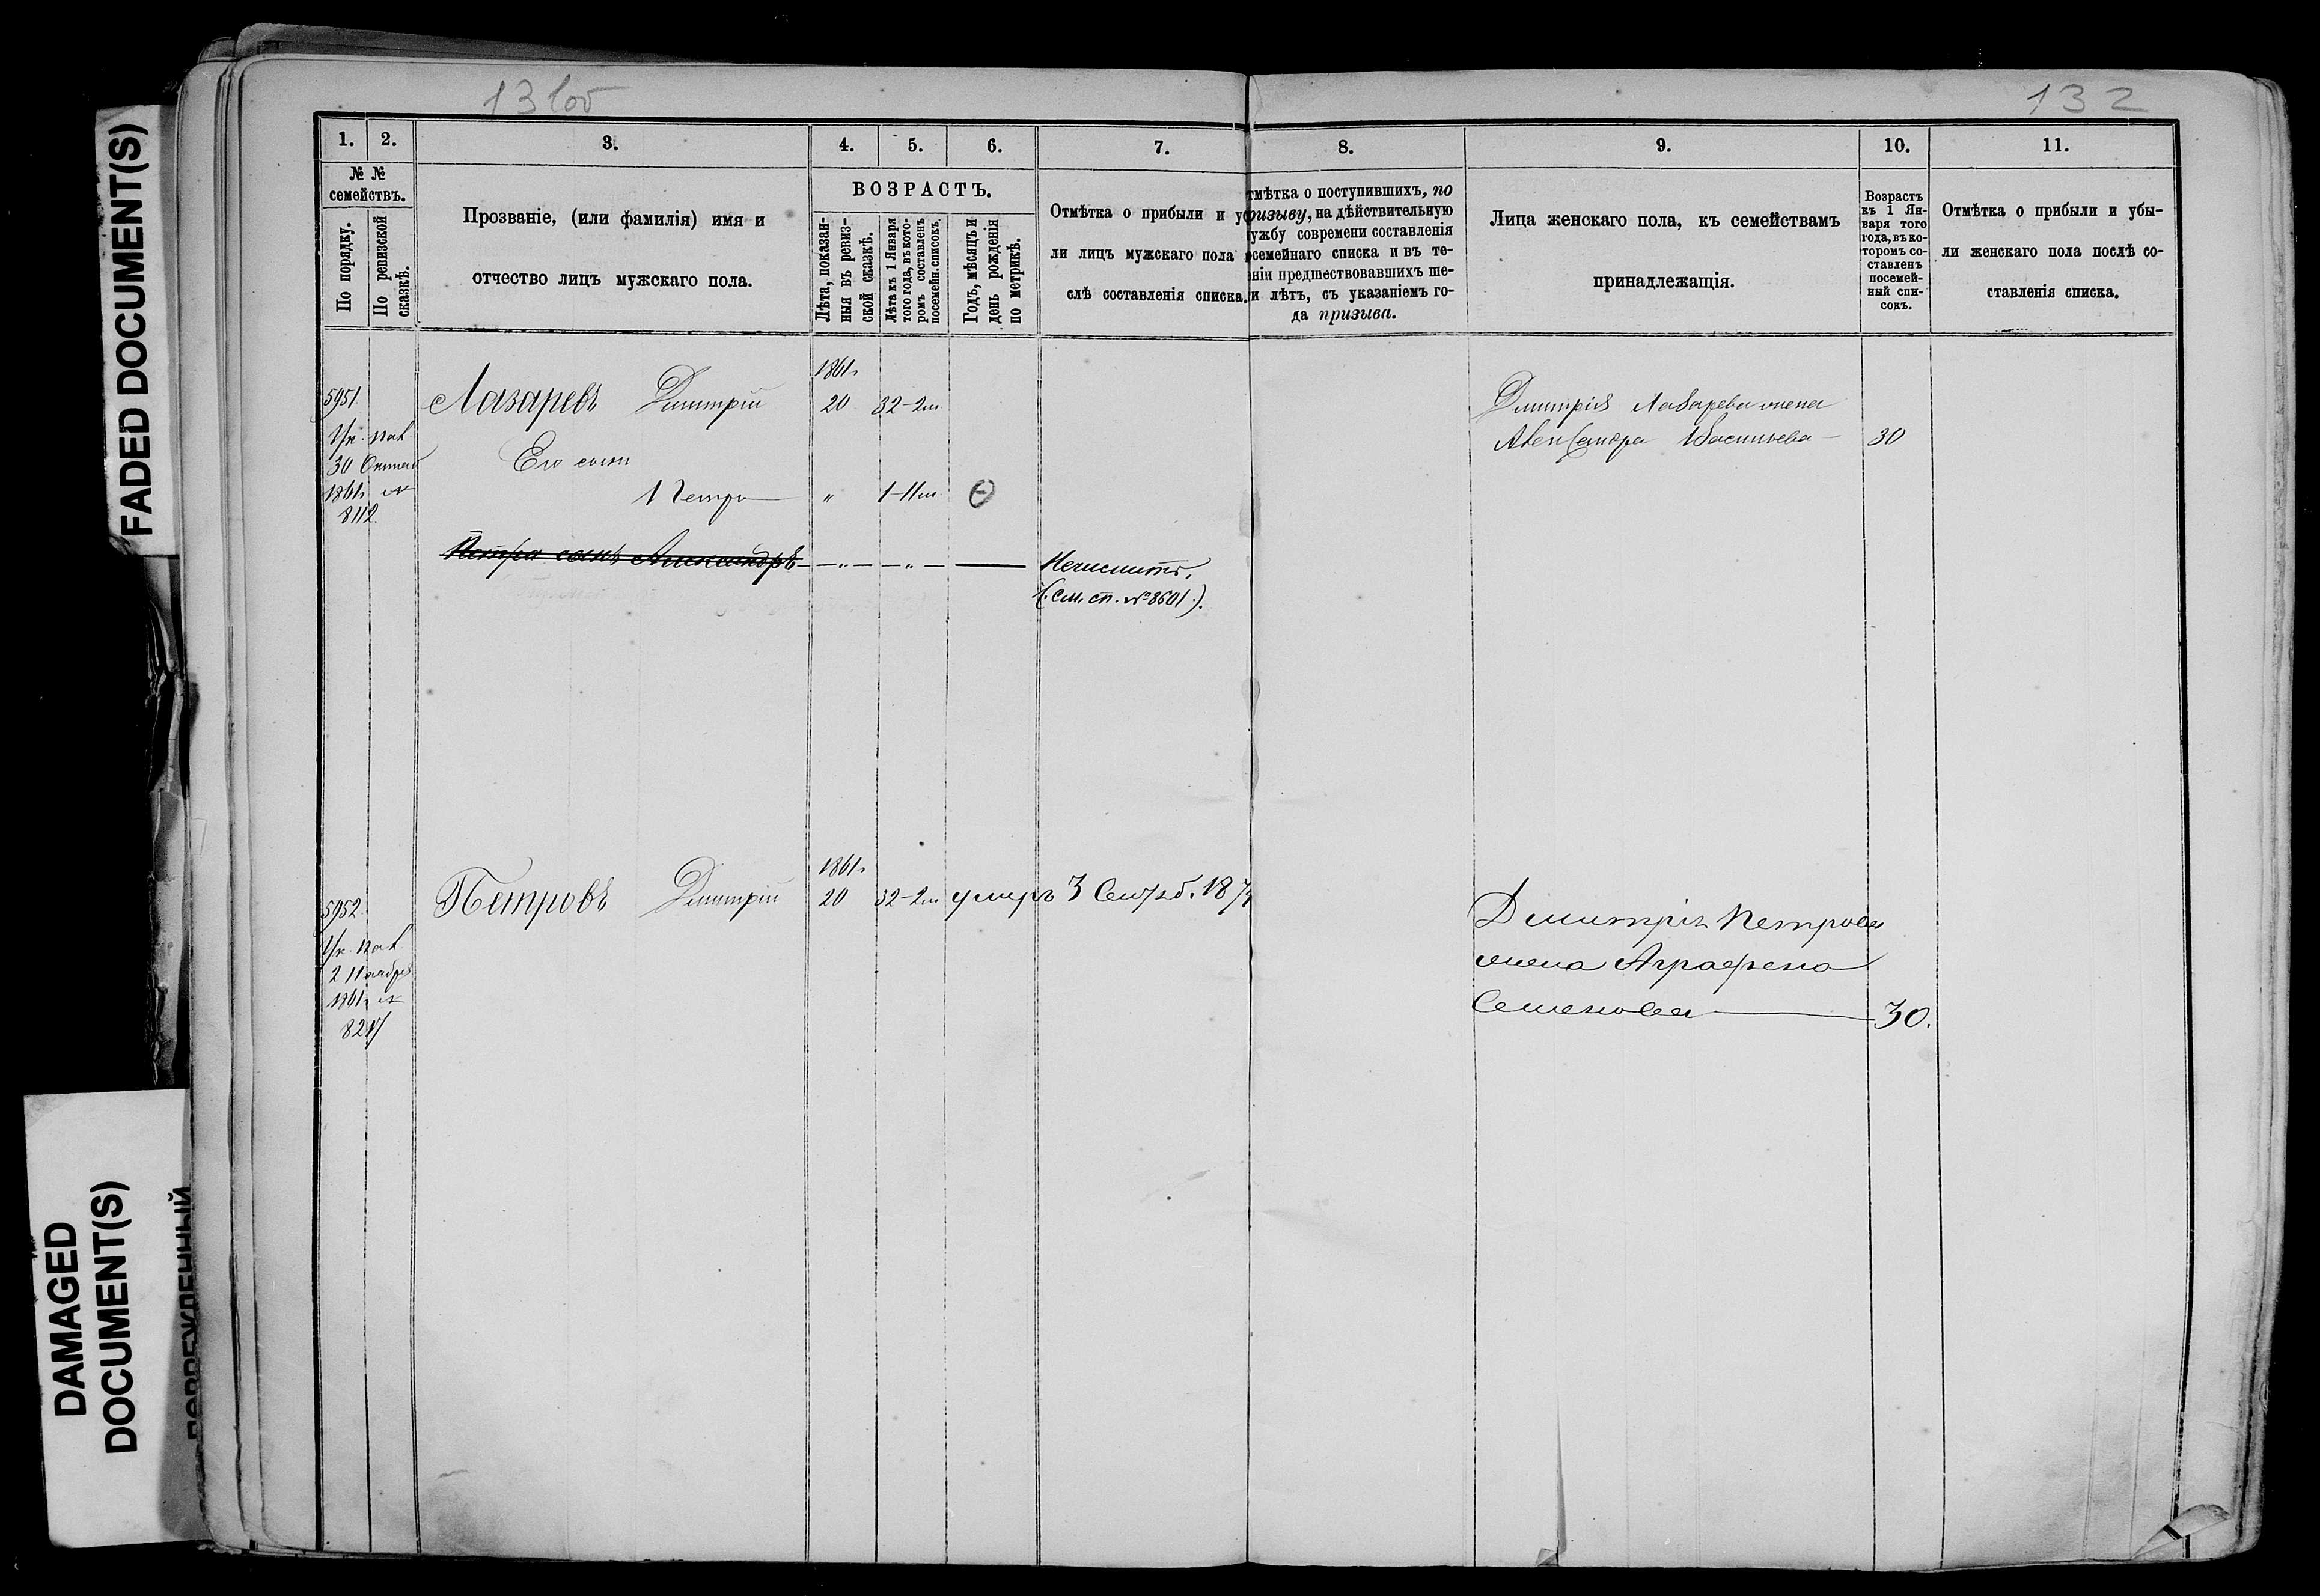 FADED DOCUMENT(S)
DAMAGED
DOCUMENT(S)
131об
132
1.
2.
3.
4.
5.
6.
7.
8.
9.
10.
11.
№ №
семействъ.
По порядку.
По ревизской
сказкѣ.
Прозваніе, (или фамилія) имя и
отчество лицъ мужскаго пола.
ВОЗРАСТЪ.
Лѣта, показан-
ныя въ ревиз-
ской сказкѣ.
Лѣта къ 1 Января
того года, въ кото-
ромъ составленъ
посемейн. списокъ.
Годъ, мѣсяцъ и
день рожденія
по метрикѣ.
Отмѣтка о прибыли и у
ли лицъ мужскаго пола
слѣ составленія списка.
тмѣтка о поступившихъ, по
ризыву, на дѣйствительную
ужбу современи составленія
осемейнаго списка и въ те-
ніи предшествовавшихъ ше-
и лѣтъ, съ указаніемъ го-
да призыва.
Лица женскаго пола, къ семействамъ
принадлежащія.
Возрастъ
къ 1 Ян-
варя того
года, въ ко-
торомъ со-
ставленъ
посемей-
ный спи-
сокъ.
Отмѣтка о прибыли и убы-
ли женскаго пола послѣ со-
ставленія списка.
1861 г
5951 Лазаревъ Димитрій 20 32-2м
Ук. пал
30 Октяб
1861 г №
8112.
Его сынъ
Петръ „ 1-11м.
Петра сынъ Александръ — „ — — „ — —
Неисчит.
(см. сп. № 8601.).
Димитрія Лазарева жена
Александра Васильева — 30
1861 г
5952 Петровъ Димитрій 20 32-2м умеръ 3 Сентяб. 187
Ук. пал
2 Ноября
1861 г №
821
Димитрія Петрова
жена Аграфена
Семенова — 30.